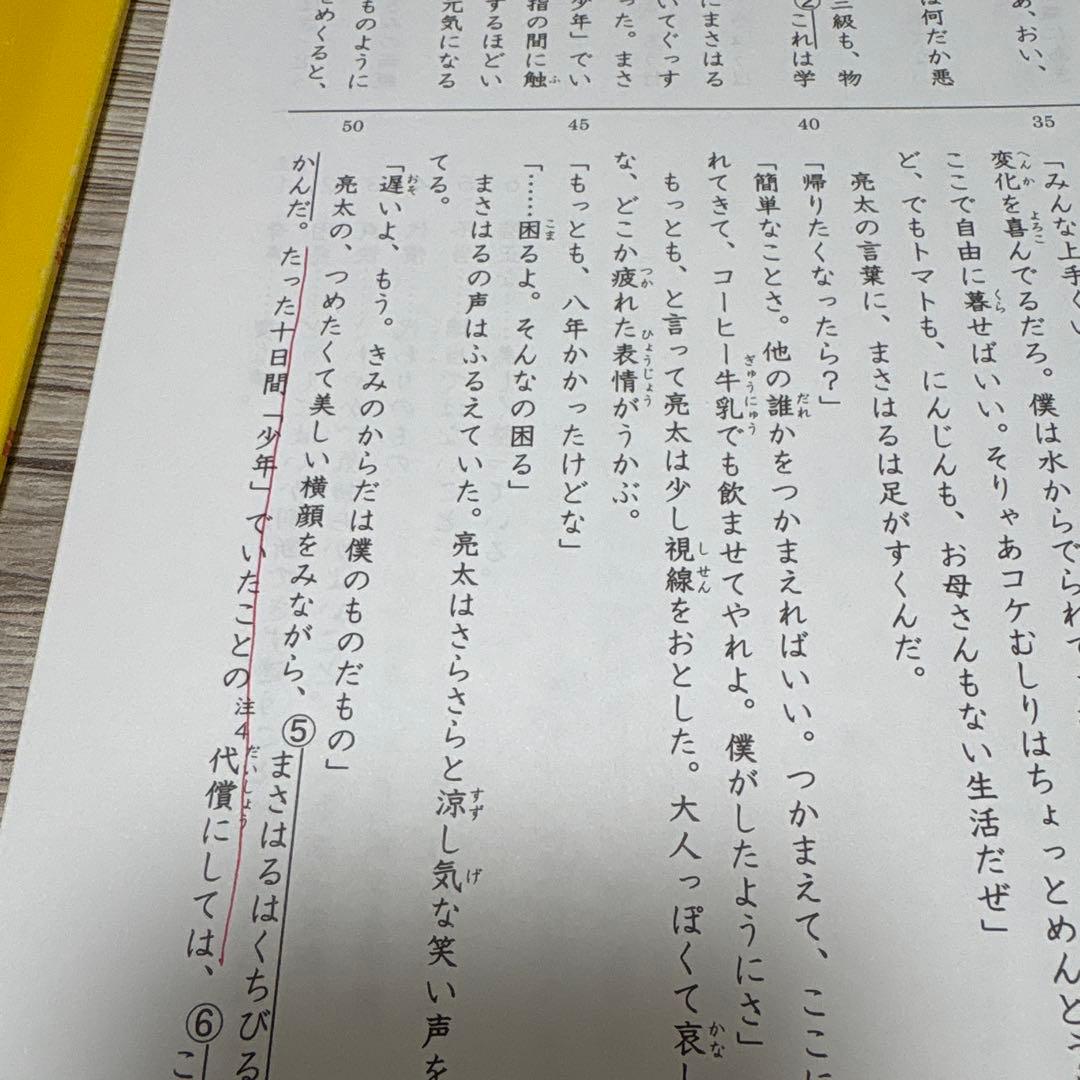 あ、おい、
は何だか悪
三級も、物
②これは学
にまさはる
いてぐっす
った。まさ
少年」でい
指の間に触ふ
するほどい
元気になる
ものように
をめくると、
35
40
45
50
「みんな上手く
変化へんかを喜よろこんでるだろ。僕は水からでられて
ここで自由に暮くらせばいい。そりゃあコケむしりはちょっとめんど
ど、でもトマトも、にんじんも、お母さんもない生活だぜ」
亮太の言葉に、まさはるは足がすくんだ。
「帰りたくなったら？」
「簡単なことさ。他の誰だれかをつかまえればいい。つかまえて、ここに
れてきて、コーヒー牛乳ぎゅうにゅうでも飲ませてやれよ。僕がしたようにさ」
もっとも、と言って亮太は少し視線しせんをおとした。大人っぽくて哀かなし
な、どこか疲つかれた表情ひょうじょうがうかぶ。
「もっとも、八年かかったけどな」
「……困こまるよ。そんなの困る」
まさはるの声はふるえていた。亮太はさらさらと涼すずし気げな笑い声を
てる。
「遅おそいよ、もう。きみのからだは僕のものだもの」
亮太の、つめたくて美しい横顔をみながら、⑤まさはるはくちびる
かんだ。たった十日間「少年」でいたことの注4代償だいしょうにしては、⑥こ